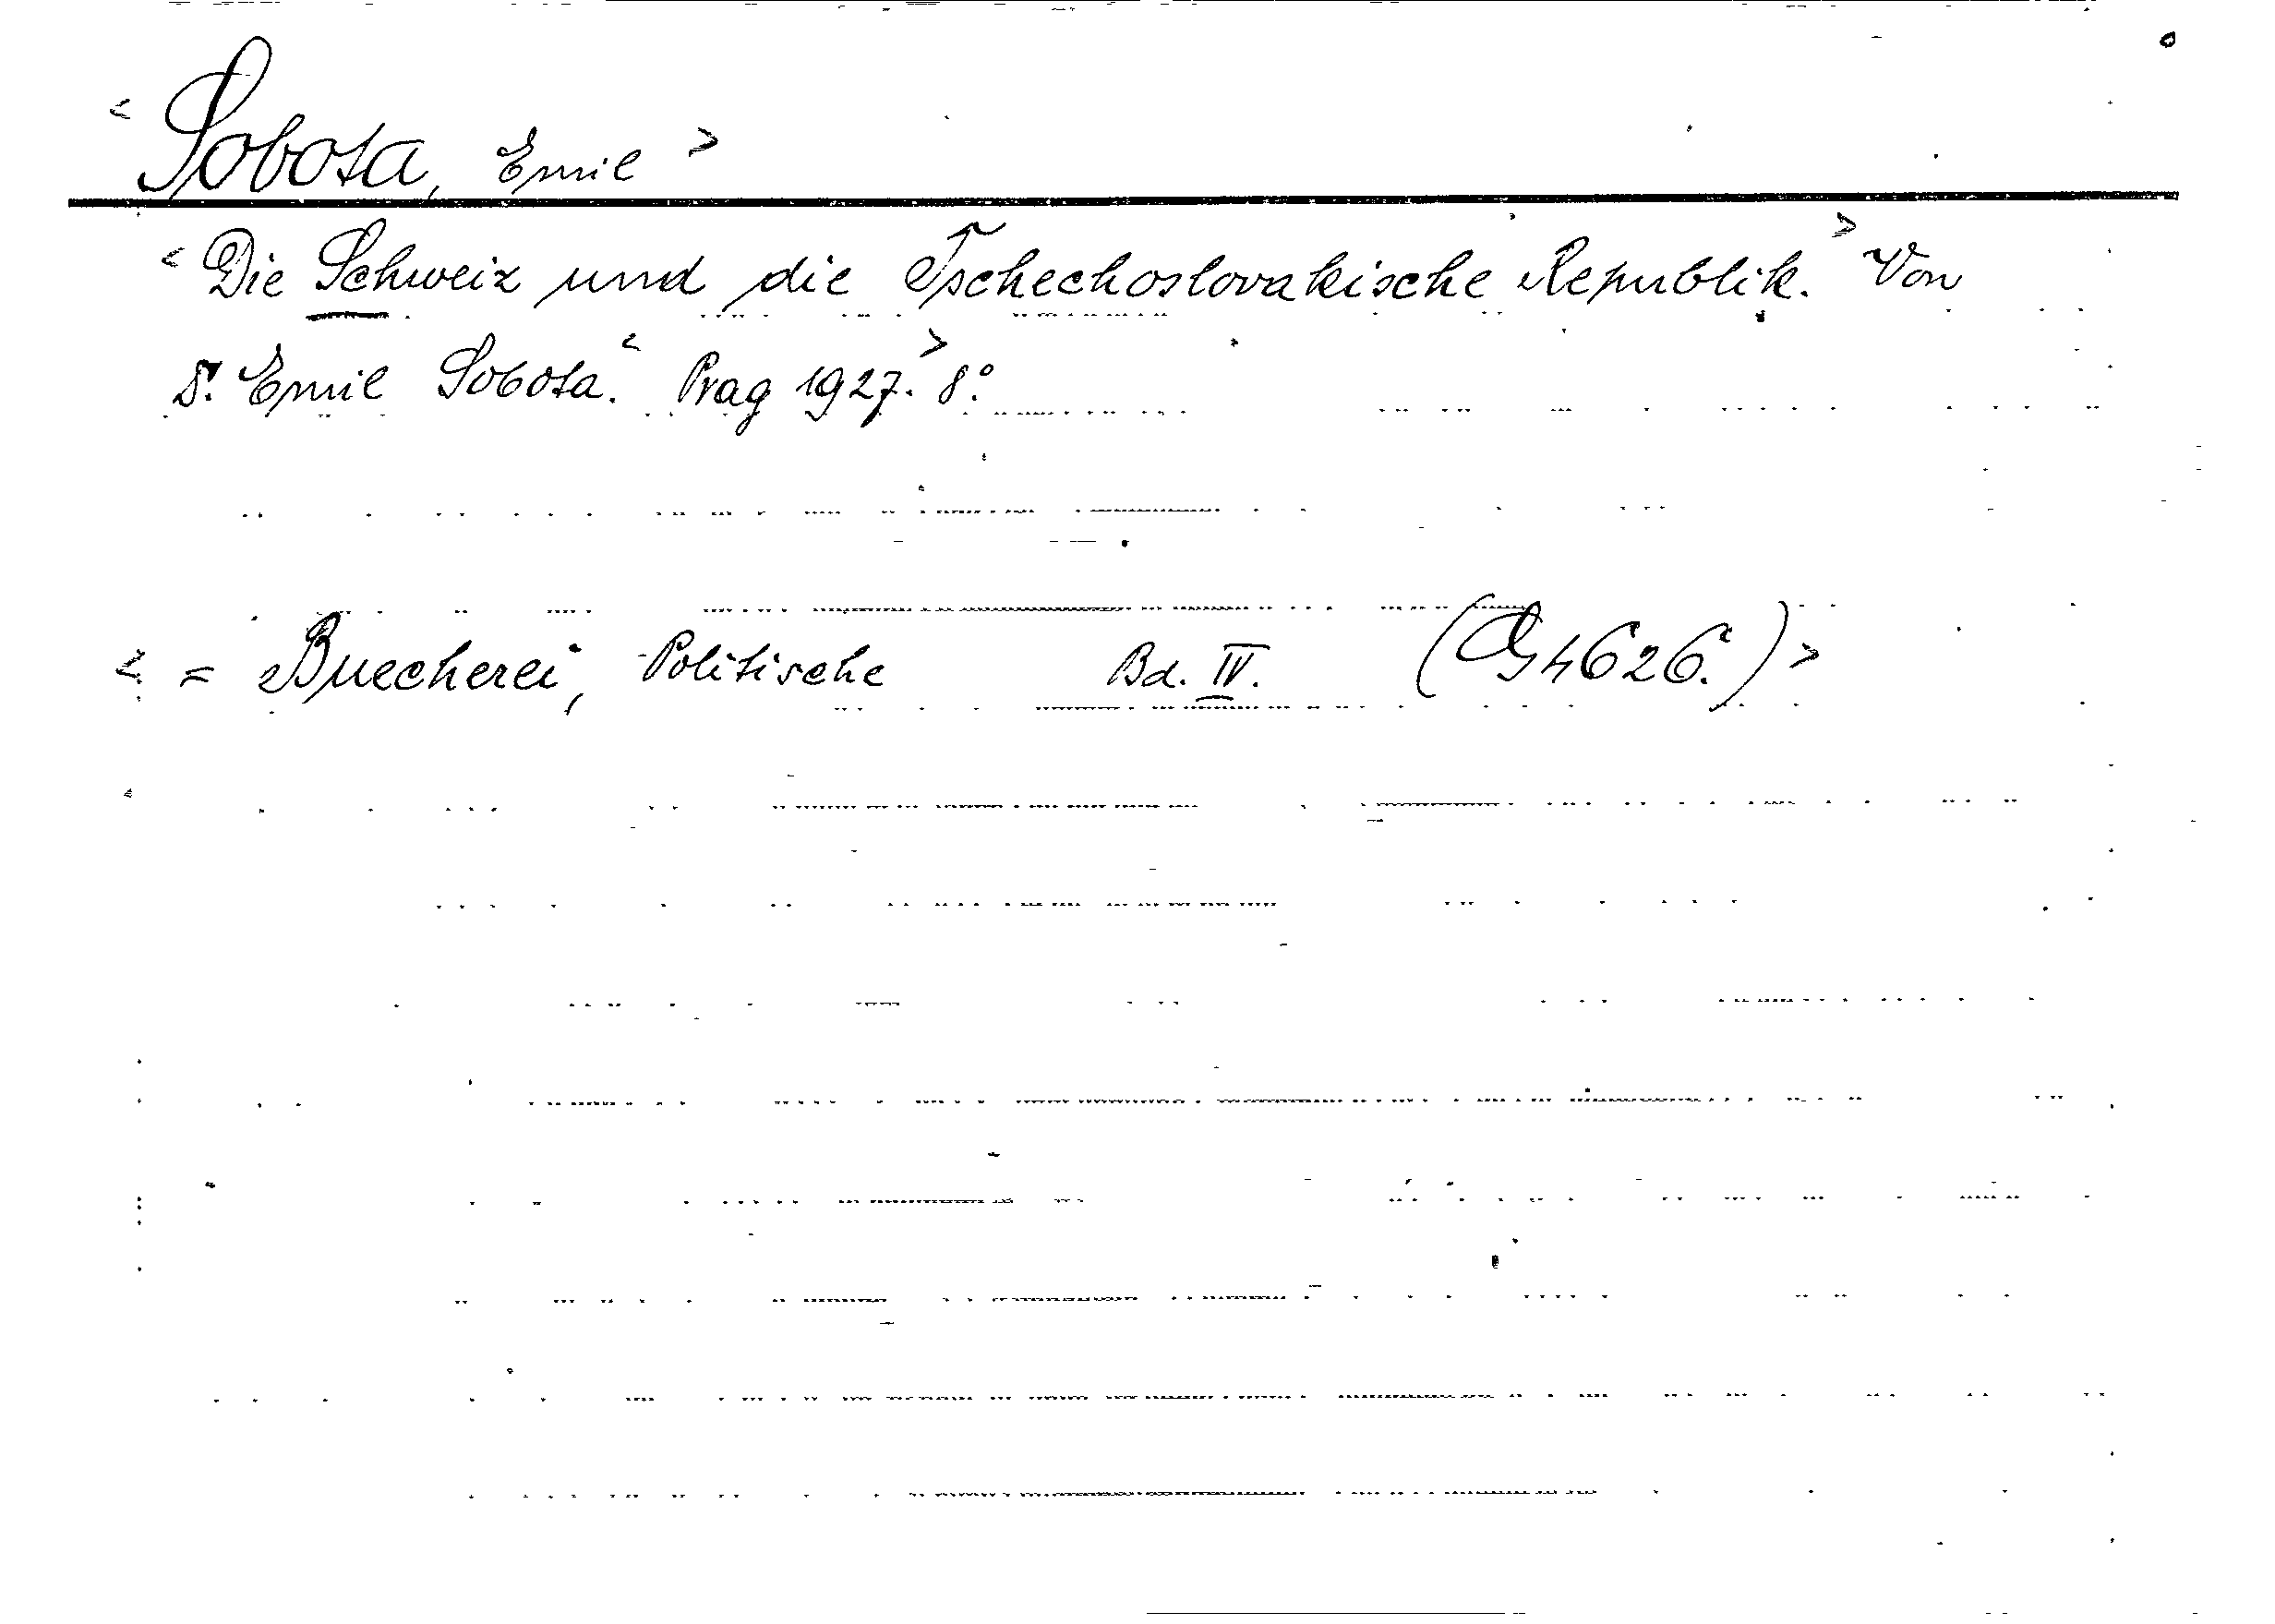 < Sobota, Emil >
< Die Schweiz und die Tschechoslovakische Republik. > Von
Dr. Emil Sobota. < Prag 1927. > 8°.
< = Buecherei, Politische Bd. IV. (G 4626.) >